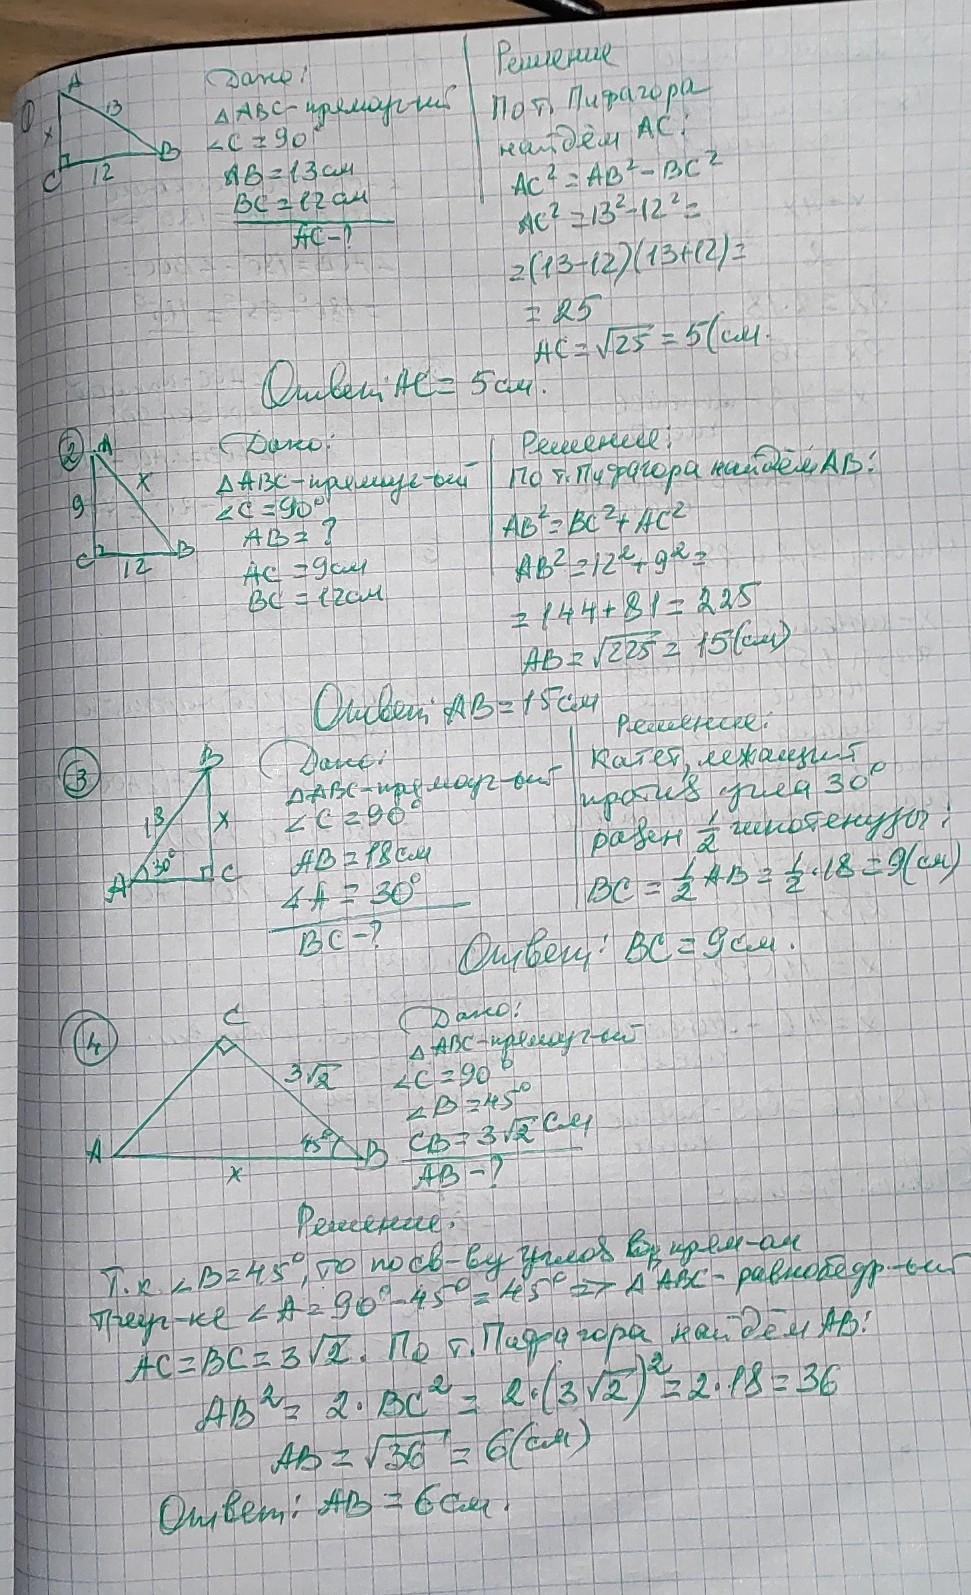 1
A
13
x
C
12
B
Дано:
△ABC-прямоуг-ый
∠C=90°
AB=13см
BC=12см
AC-?
Решение
По т. Пифагора
найдём AC:
AC²=AB²-BC²
AC²=13²-12²=
=(13-12)(13+12)=
=25
AC=√25=5(см.
Ответ: AC=5см.
2
A
9
x
C
12
B
Дано:
△ABC-прямоуг-ый
∠C=90°
AB=?
AC=9см
BC=12см
Решение:
По т. Пифагора найдём AB:
AB²=BC²+AC²
AB²=12²+9²=
=144+81=225
AB=√225=15(см)
Ответ: AB=15см
3
B
18
x
A
30°
C
Дано:
△ABC-прямоуг-ый
∠C=90°
AB=18см
∠A=30°
BC-?
Решение:
Катет, лежащий
против угла 30°
равен ½ гипотенузы:
BC=½AB=½·18=9(см)
Ответ: BC=9см.
4
C
3√2
A
45°
B
x
Дано:
△ABC-прямоуг-ый
∠C=90°
∠B=45°
CB=3√2 см
AB-?
Решение:
Т.к ∠B=45°, то по св-ву углов в прям-ом
треуг-ке ∠A=90°-45°=45° => △ABC-равнобедр-ый
AC=BC=3√2. По т. Пифагора найдём AB:
AB²=2·BC²=2·(3√2)²=2·18=36
AB=√36=6(см)
Ответ: AB=6см.